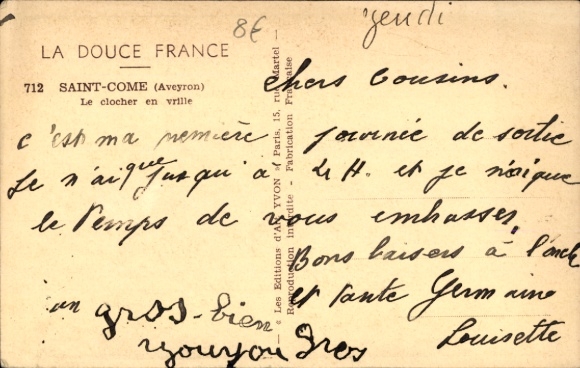 8€
Jeudi
LA DOUCE FRANCE
712 SAINT-COME (Aveyron)
Le clocher en vrille
« Les Editions d'Art YVON » Paris, 15, rue Martel —
Reproduction interdite - Fabrication Française
chers Cousins.
c'est ma première journée de sortie
Je n'ai que jusqu'à 4 H. et je n'ai que
le temps de vous embrasser,
Bons baisers à l'oncle
et tante Germaine
Louisette
un gros bien
gros